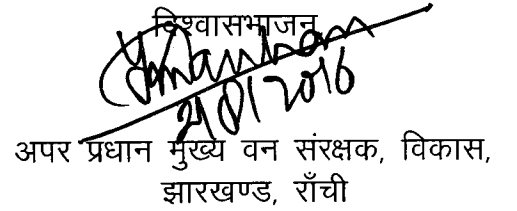 विश्वासभाजन
अपर प्रधान मुख्य वन संरक्षक, विकास,
झारखण्ड, राँची